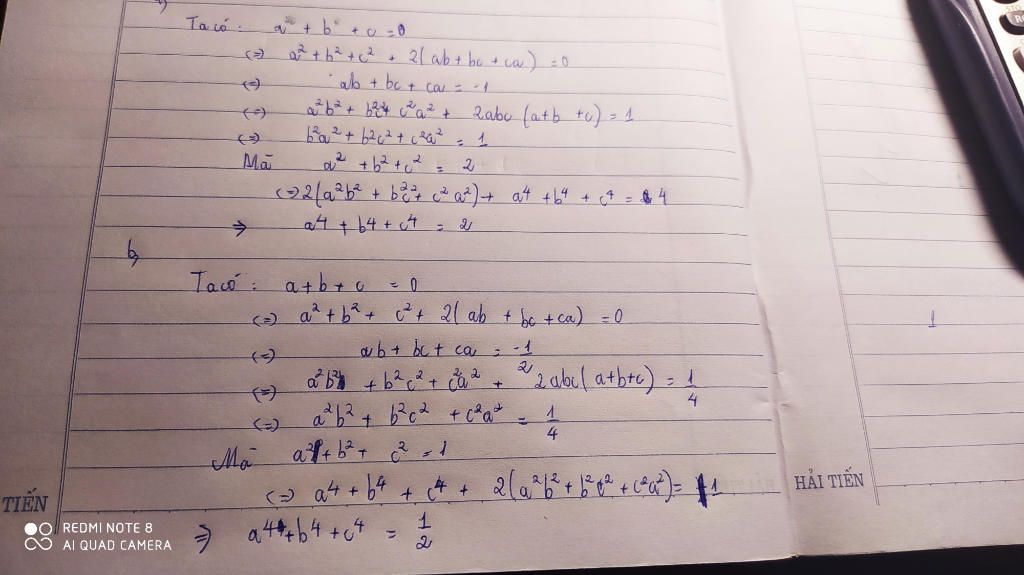 a)
Ta có: a + b + c = 0
(=) a² + b² + c² + 2(ab + bc + ca) = 0
(=) ab + bc + ca = -1
(=) a²b² + b²c² + c²a² + 2abc (a+b +c) = 1
(=) b²a² + b²c² + c²a² = 1
Mà a² + b² + c² = 2
(=) 2(a²b² + b²c² + c²a²) + a⁴ + b⁴ + c⁴ = 4
=> a⁴ + b⁴ + c⁴ = 2
b,
Ta có: a + b + c = 0
(=) a² + b² + c² + 2(ab + bc + ca) = 0
(=) ab + bc + ca = -1/2
(=) a²b² + b²c² + c²a² + 2abc(a+b+c) = 1/4
(=) a²b² + b²c² + c²a² = 1/4
Mà a² + b² + c² = 1
(=) a⁴ + b⁴ + c⁴ + 2(a²b² + b²c² + c²a²) = 1
=> a⁴ + b⁴ + c⁴ = 1/2
1
TIẾN
HẢI TIẾN
REDMI NOTE 8
AI QUAD CAMERA